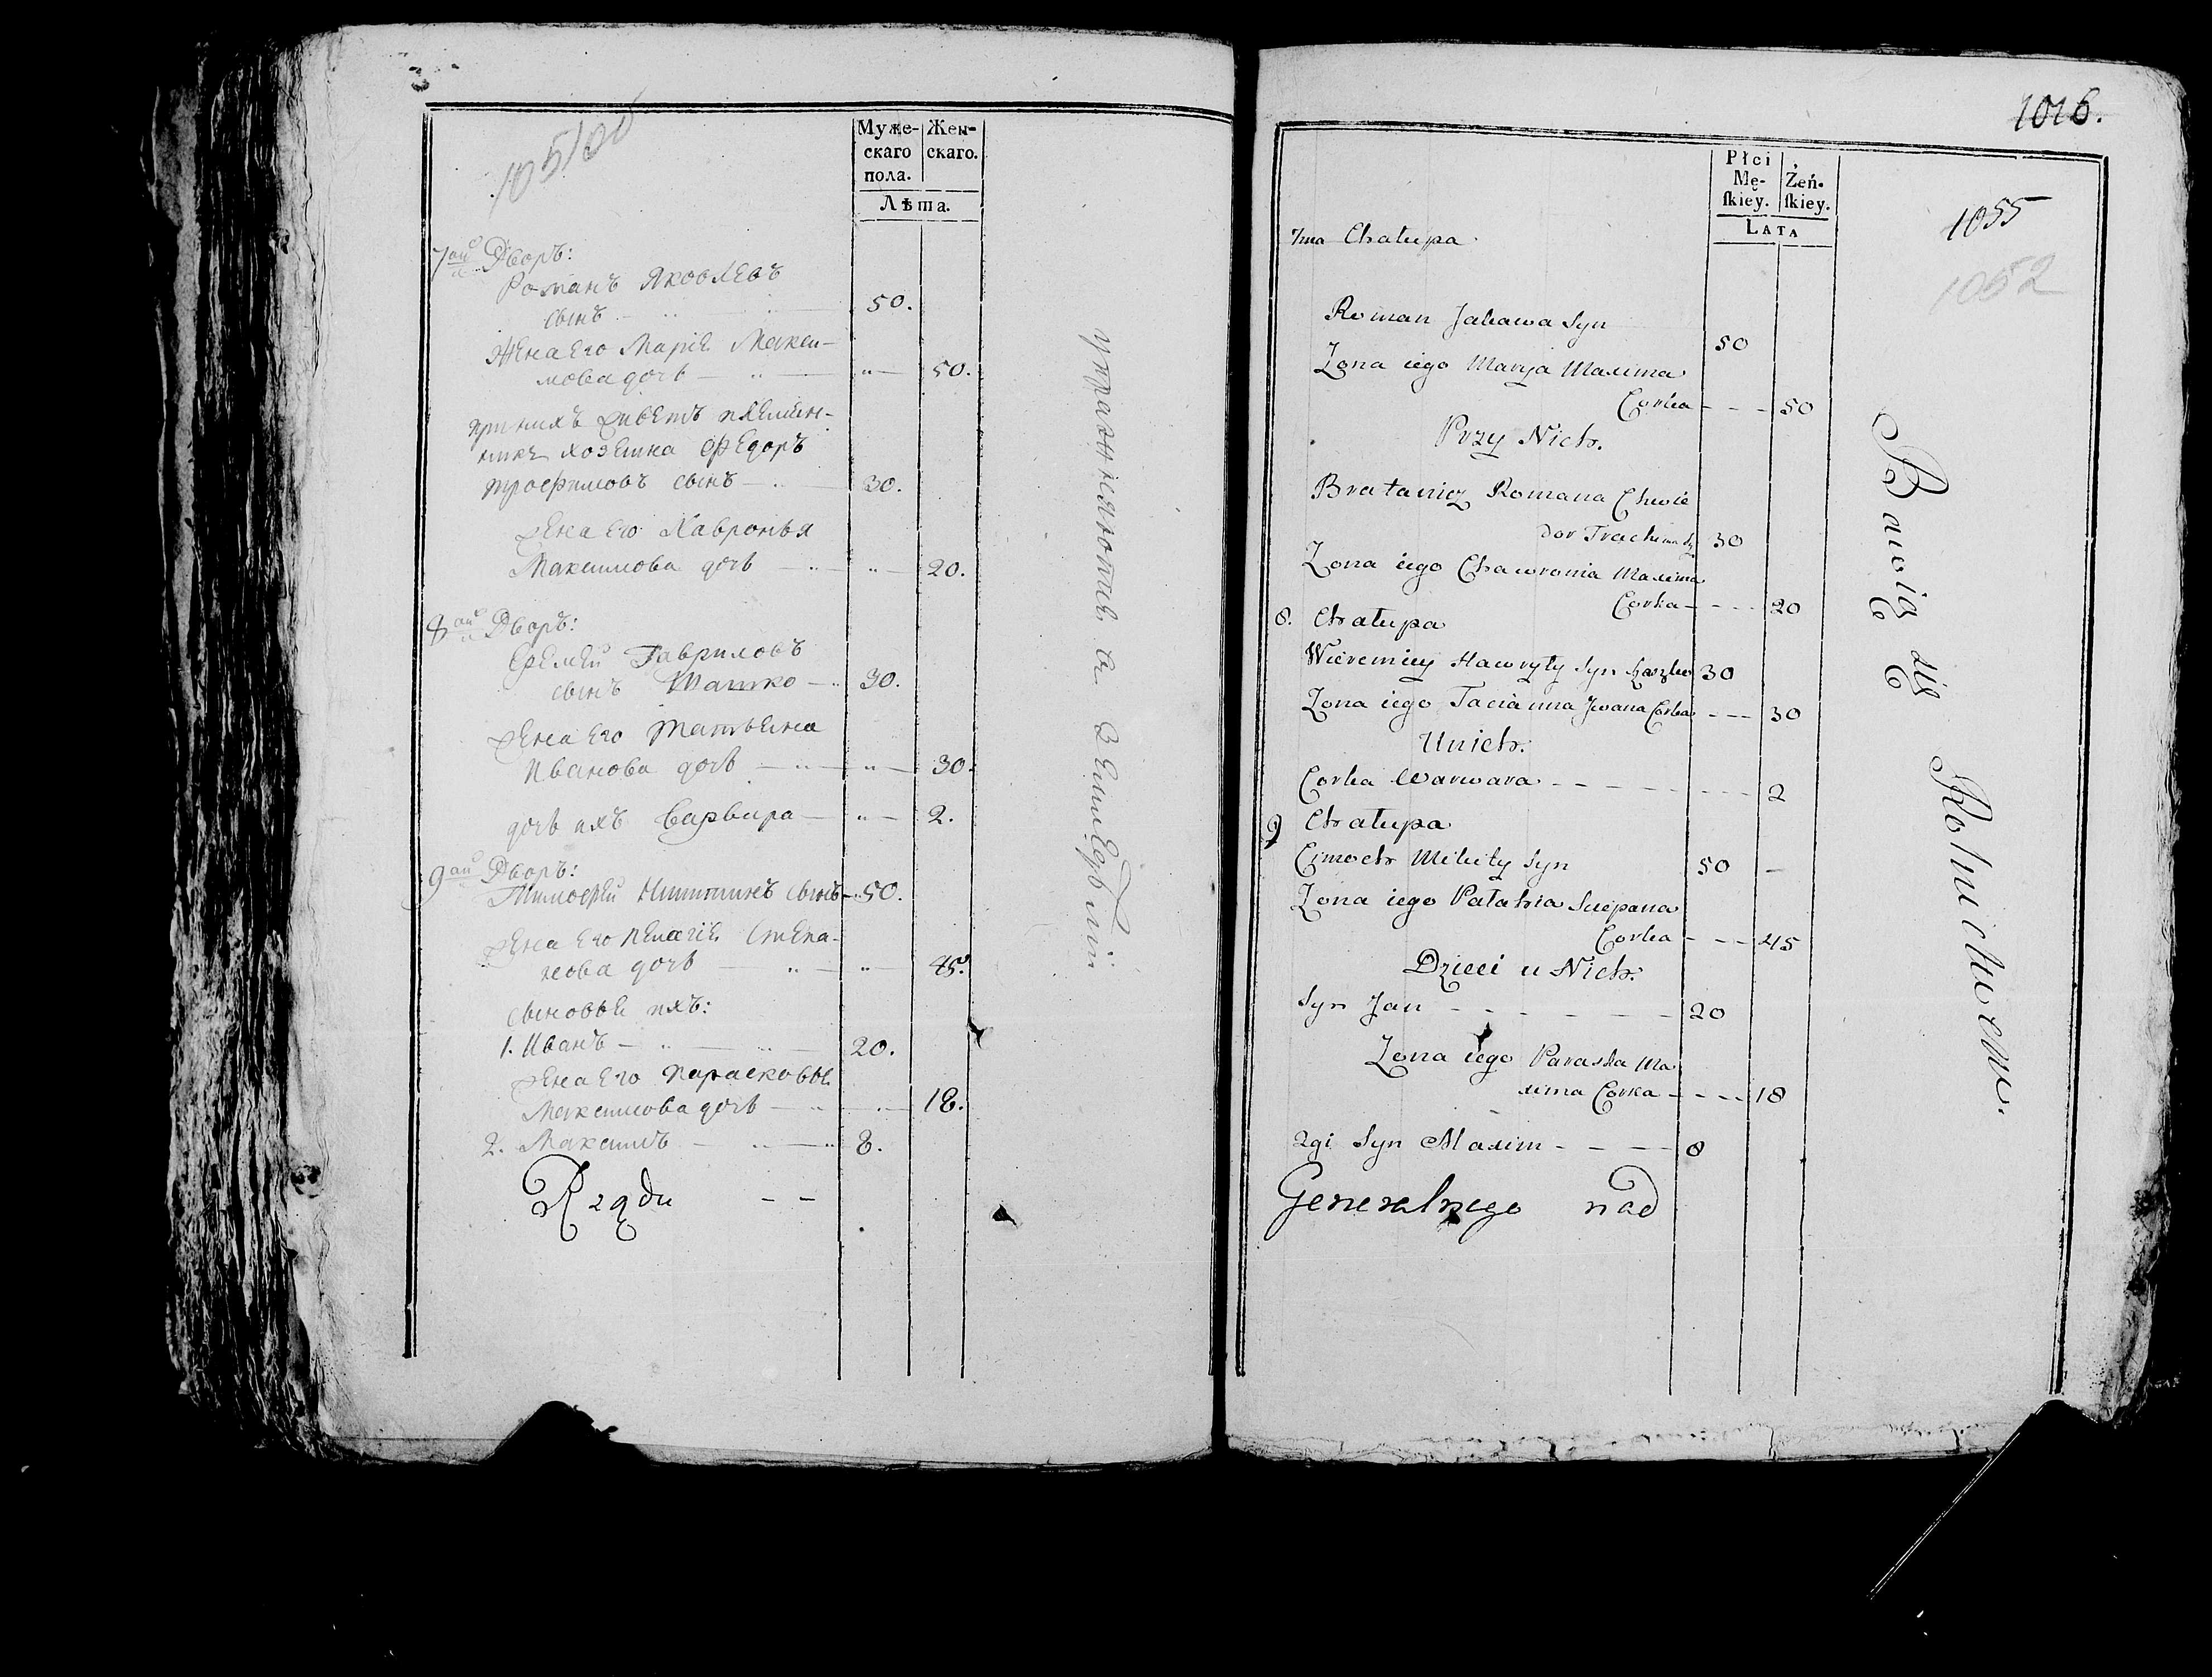 Муже-
скаго
пола.
Жен-
скаго.
Лѣта.
7ой Дворъ:
Романъ Яковлевъ
сынъ 50.
Жена Его Марiе Макси-
мова дочь 50.
при нихъ живетъ племян-
никъ хозяина Федоръ
трофимовъ сынъ 30.
жена Его Хавронья
Максимова дочь 20.
8ой Дворъ:
Еремей Гавриловъ
сынъ 30.
жена Его Татьяна
Иванова дочь 30.
дочь ихъ Варвара 2.
9ой Дворъ:
Тимофей Никитинъ сынъ 50.
жена Его пелагiе Степа-
нова дочь 45.
сыновья ихъ:
1. Иванъ 20.
жена Его парасковья
Максимова дочь 18.
2. Максимъ 8.
Rządu
упражняются в Земледѣлiи
1016.
1055
1052
Płci
Mę-
skiey.
Żeń-
skiey.
LATA
7ma Chałupa
Roman Jakowa Syn 50
Zona iego Marya Maxima
Corka - - - 50
Przy Nich.
Bratanicz Romana Chwie
dor Trachima Sy 30
Zona iego Chawronia Maxima
Corka - - - 20
8. Chałupa
Wieremiey Hawryły Syn 30
Zona iego Tacianna Jwana Corka - - - 30
U nich.
Corka Warwara - - - 2
9 Chałupa
Cimoch Mikity Syn 50 -
Zona iego Patahia Sciepana
Corka - - - 45
Dzieci u Nich.
Syn Jan - - - 20
Zona iego Paraska Ma
xima Corka - - - 18
2gi Syn Maxim - - - 8
Generalnego nad
Bawią się Rolnictwem.